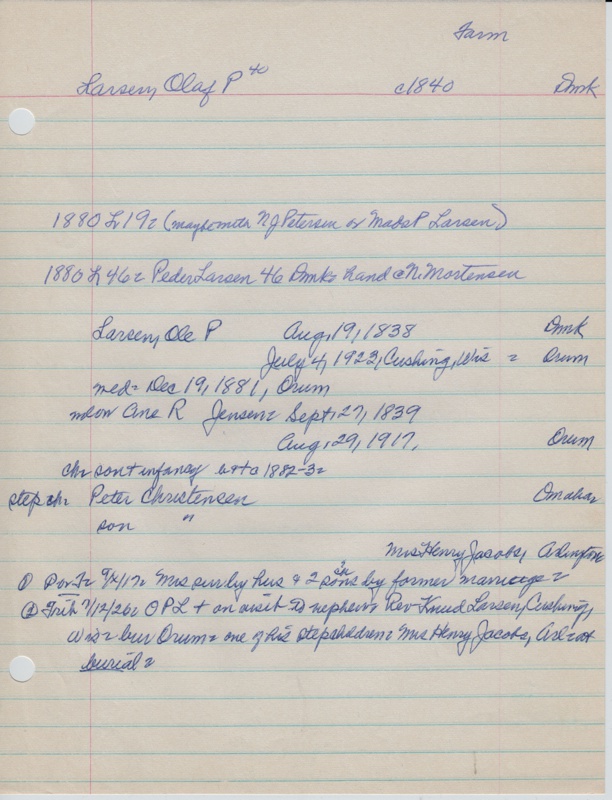 Farm
Larsen, Olaf P 40 c1840 Dmk
1880 L 192 (maybe mem N J Petersen or Mads P Larsen)
1880 L 46= Peder Larsen 46 Dmk= hand c N. Mortensen
Larsen, Ole P Aug, 19, 1838 Dmk
July 4, 1923, Cushing, Wis = Orum
med= Dec 19, 1881, Orum
Ane R Jensen= Sept, 27, 1839
Aug, 29, 1917, Orum
ch= son + infancy b + c 1882-3=
step ch= Peter Christensen Omaha=
son "
Mrs Henry Jacobs, Arlington
① 9/4/17= Mrs surv by hus & 2 sons ch by former marriage=
② Trib 7/12/26= O P L + on visit to nephew= Rev Knud Larsen, Cushing,
Wis= bur Orum= one of his stepchildren= Mrs Henry Jacobs, Arl= at
burial=